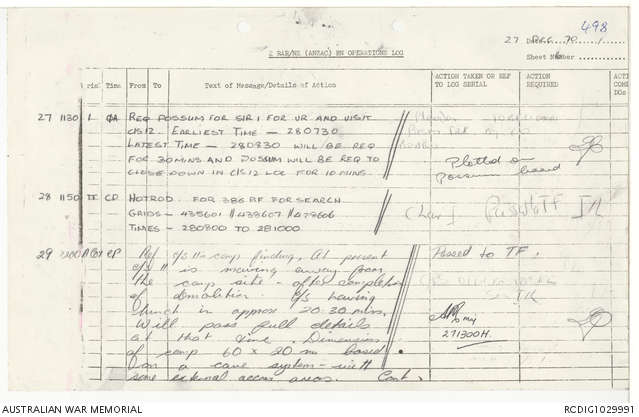 498
27 Dec 70
2 RAR/NZ (ANZAC) BN OPERATIONS LOG
Sheet Number
Serial Time From To Text of Message/Details of Action ACTION TAKEN OR REF TO LOG SERIAL ACTION REQUIRED
27 1130 1 REQ POSSUM FOR SIR 1 FOR VR AND VISIT
C/S 12. EARLIEST TIME - 280730
LATEST TIME - 280830 WILL BE REQ
FOR 30 MINS AND POSSUM WILL BE REQ TO
CLOSE DOWN IN C/S 12 LOC FOR 10 MINS.
Plotted on
Possum board
28 1150 TF CP HOTROD. FOR 386 RF FOR SEARCH
GRIDS - 435601 // 438607 // 478606
TIMES - 280800 TO 281000
Pass to TF
29 CP Ref c/s 11 camp finding, At present
c/s 11 is moving away from
the camp site - after completion
of demolition. C/S having
lunch in approx 20-30 mins.
Will pass full details
at that time. Dimensions
of camp 60 x 20 m based
on a cave system - with
some external accom areas. Cont.
Passed to TF.
271300H.
AUSTRALIAN WAR MEMORIAL
RCDIG1029991